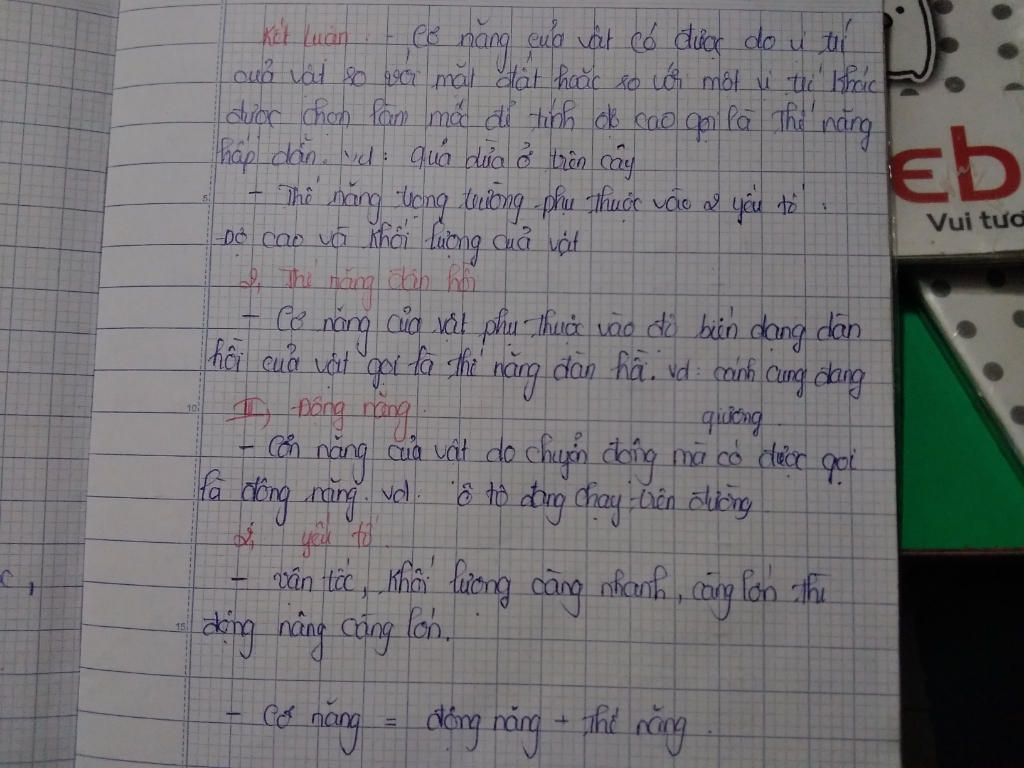 Kết luận: - Cơ năng của vật có được do vị trí
của vật so với mặt đất hoặc so với một vị trí khác
được chọn làm mốc để tính độ cao gọi là Thế năng
hấp dẫn. vd: quả dừa ở trên cây
- Thế năng trọng trường phụ thuộc vào 2 yếu tố:
Độ cao và khối lượng của vật
2, Thế năng đàn hồi
- Cơ năng của vật phụ thuộc vào độ biến dạng đàn
hồi của vật gọi là thế năng đàn hồi. vd: cánh cung đang
giương
II, Động năng.
- Cơn năng của vật do chuyển động mà có được gọi
là động năng. vd: ô tô đang chạy trên đường
2, yếu tố
- vận tốc, khối lượng càng nhanh, càng lớn thì
động năng càng lớn.
- Cơ năng = động năng + Thế năng.
eb
Vui tươ
c,